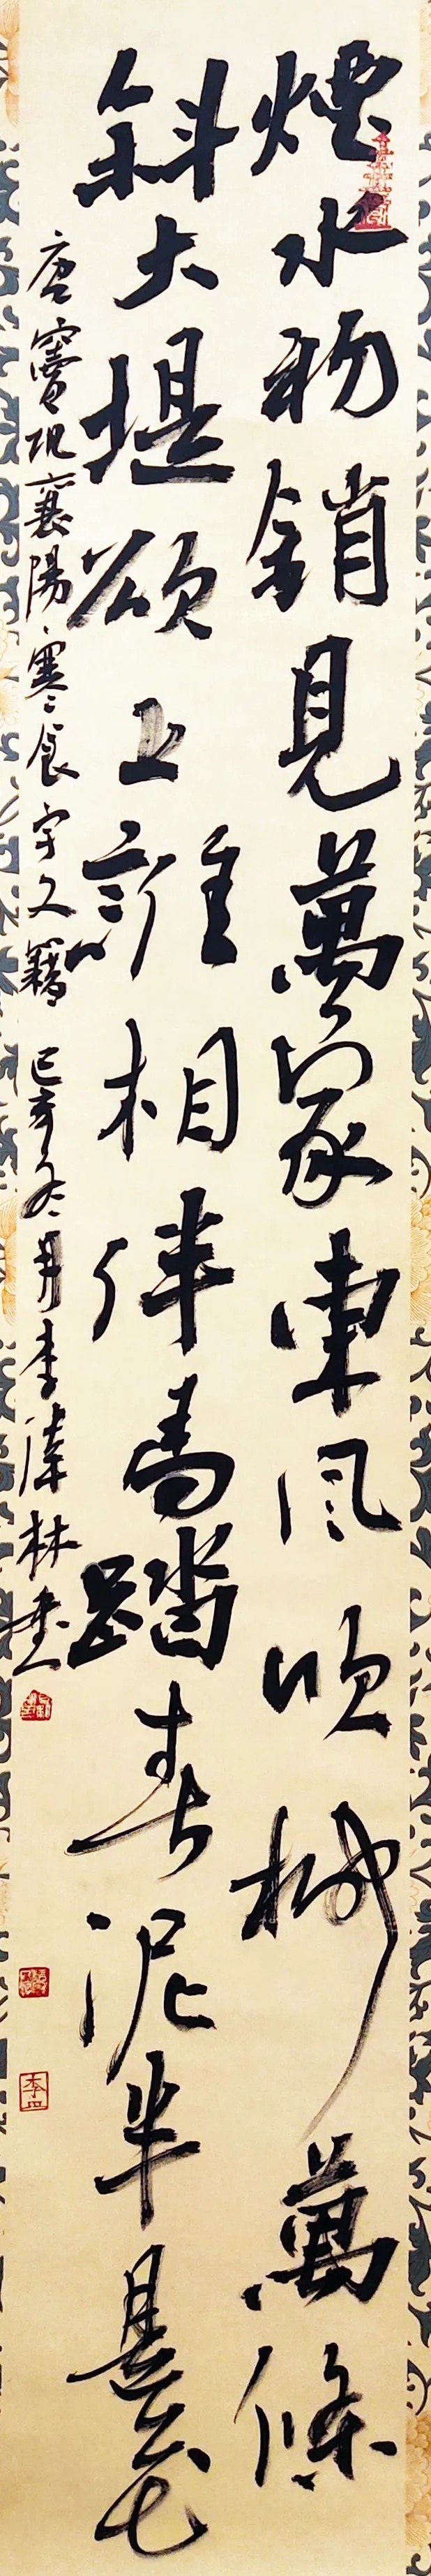 煙水初銷見萬家東風吹柳萬條
斜大堤欲上誰相伴馬踏春泥半是花
唐竇巩襄陽寒食宇文籍 己亥冬月李林書